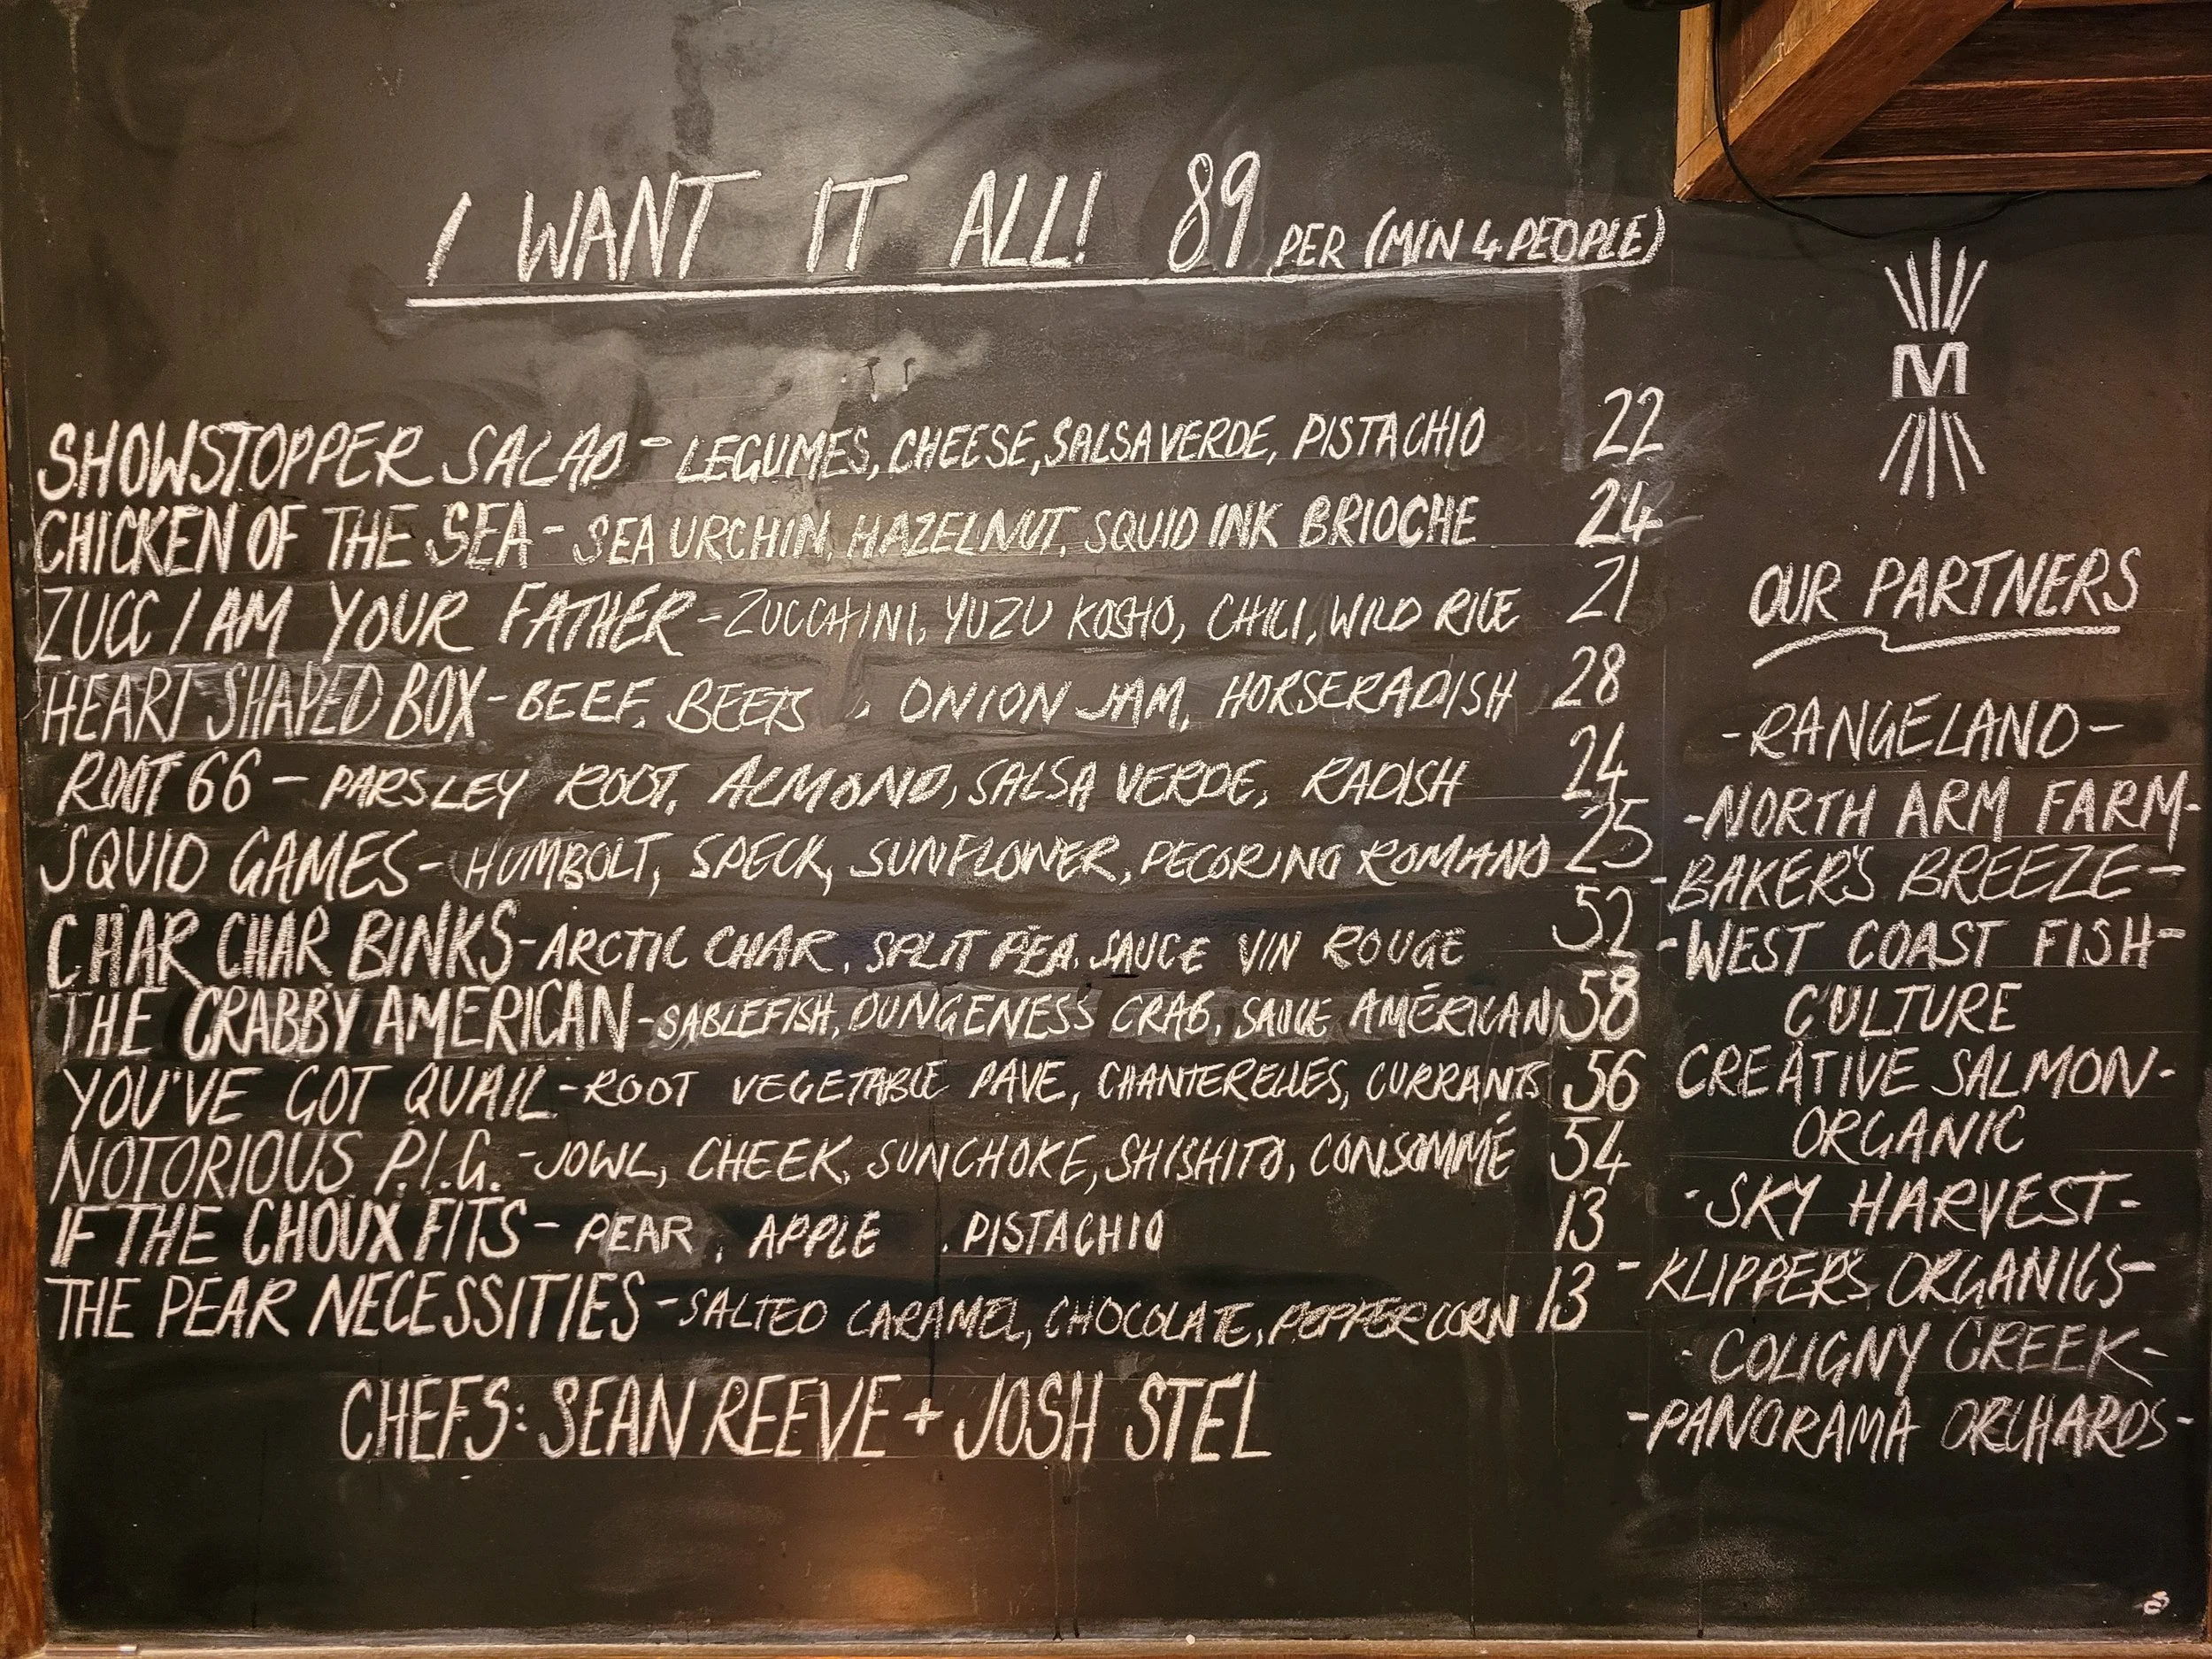 I WANT IT ALL! 89 PER (MIN 4 PEOPLE)
SHOWSTOPPER SALAD - LEGUMES, CHEESE, SALSA VERDE, PISTACHIO 22
CHICKEN OF THE SEA - SEA URCHIN, HAZELNUT, SQUID INK BRIOCHE 24
ZUCC I AM YOUR FATHER - ZUCCHINI, YUZU KOSHO, CHILI, WILD RICE 21
HEART SHAPED BOX - BEEF, BEETS, ONION JAM, HORSERADISH 28
ROOT 66 - PARSLEY ROOT, ALMOND, SALSA VERDE, RADISH 24
SQUID GAMES - HUMBOLT, SPECK, SUNFLOWER, PECORINO ROMANO 25
CHAR CHAR BINKS - ARCTIC CHAR, SPLIT PEA, SAUCE VIN ROUGE 52
THE CRABBY AMERICAN - SABLEFISH, DUNGENESS CRAB, SAUCE AMÉRICAN 58
YOU'VE GOT QUAIL - ROOT VEGETABLE PAVE, CHANTERELLES, CURRANTS 56
NOTORIOUS P.I.G. - JOWL, CHEEK, SUNCHOKE, SHISHITO, CONSOMMÉ 54
IF THE CHOUX FITS - PEAR, APPLE, PISTACHIO 13
THE PEAR NECESSITIES - SALTED CARAMEL, CHOCOLATE, PEPPERCORN 13
CHEFS: SEAN REEVE + JOSH STEL
M
OUR PARTNERS
-RANGELAND-
-NORTH ARM FARM-
-BAKER'S BREEZE-
-WEST COAST FISH-
CULTURE
CREATIVE SALMON-
ORGANIC
-SKY HARVEST-
-KLIPPER'S ORGANICS-
-COLIGNY CREEK-
-PANORAMA ORCHARDS-